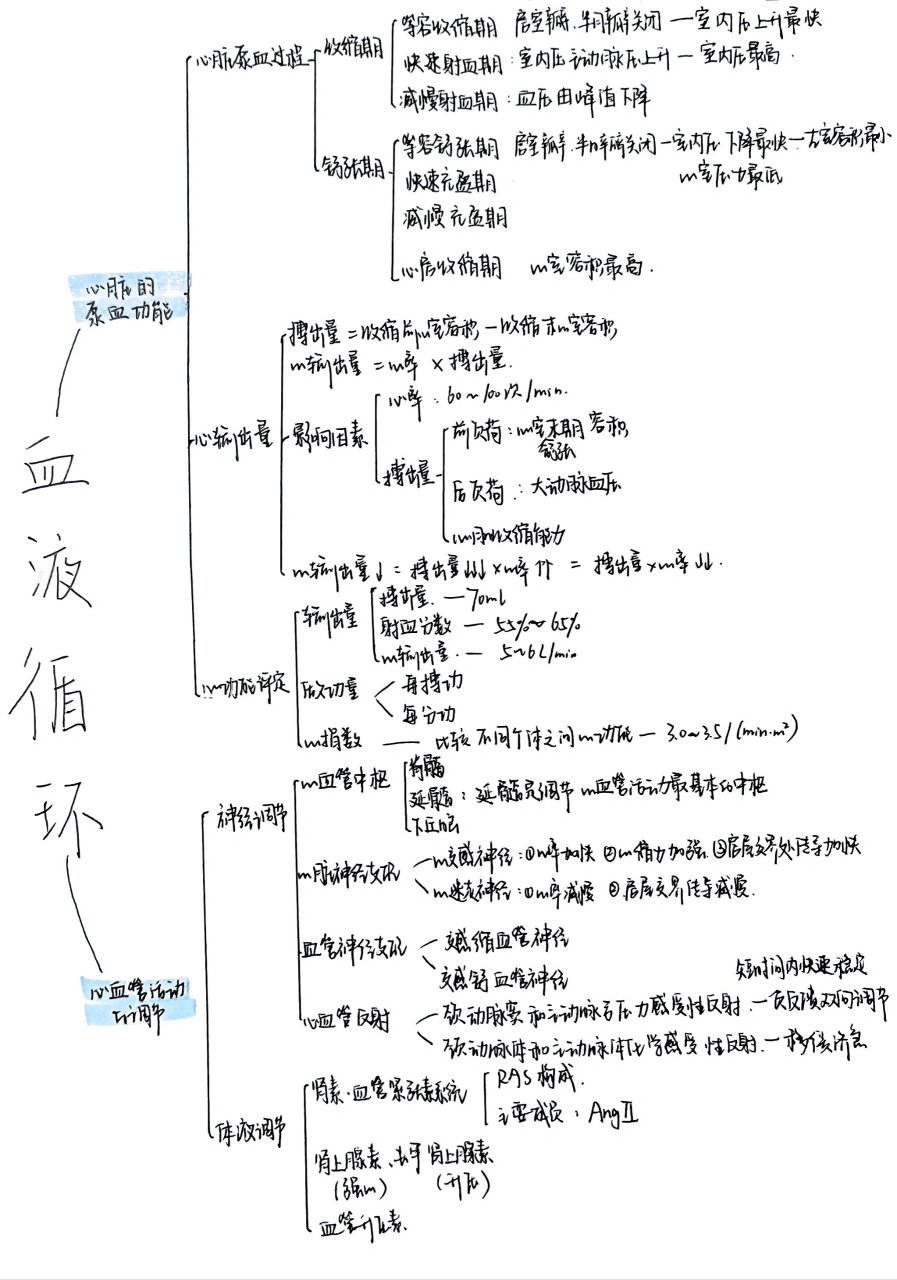 血液循环
心脏的
泵血功能
心脏泵血过程
收缩期
等容收缩期 房室瓣、半月瓣关闭 — 室内压上升最快
快速射血期：室内压、主动脉压上升 — 室内压最高.
减慢射血期：血压由峰值下降
舒张期
等容舒张期 房室瓣、半月瓣关闭 — 室内压下降最快 — 左室容积最小
快速充盈期 m室压力最低
减慢充盈期
心房收缩期 m室容积最高.
心输出量
搏出量 = 收缩前m室容积 - 收缩末m室容积
m输出量 = m率 × 搏出量.
影响因素
心率：60~100次/min.
搏出量
前负荷：m室末期容积
舒张
后负荷：大动脉血压
m肌收缩能力
m输出量↓ = 搏出量↓↓↓ × m率↑↑ = 搏出量 × m率↓↓.
m功能评定
输出量
搏出量. — 70ml
射血分数 — 55%~65%
m输出量. — 5~6L/min
做功量
每搏功
每分功
m指数 — 比较不同个体之间m功能 — 3.0~3.5/(min·m²)
心血管活动
调节
神经调节
m血管中枢
脊髓
延髓：延髓是调节m血管活动最基本的中枢
下丘脑
m脏神经支配
m交感神经：①m率加快 ②m缩力加强 ③房室交界处传导加快
m迷走神经：①m率减慢 ②房室交界传导减慢.
血管神经支配
交感缩血管神经
交感舒血管神经
短时间内快速稳定
心血管反射
颈动脉窦和主动脉弓压力感受性反射. — 负反馈双向调节
颈动脉体和主动脉体化学感受性反射. — 移缓济急
体液调节
肾素·血管紧张素系统
RAS构成.
主要成员：AngⅡ
肾上腺素、去甲肾上腺素
(强m) (升压)
血管升压素.